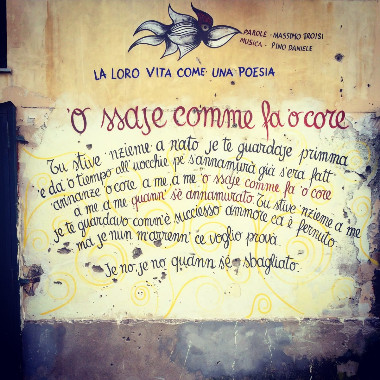 PAROLE - MASSIMO TROISI
MUSICA - PINO DANIELE
LA LORO VITA COME UNA POESIA
'O SSAJE COMME FA 'O CORE
Tu stive 'nzieme a nato je te guardaje primma
'e da 'o tiempo all'uocchie pe s'annamurà già s'era fatt
annanze 'o core a me, a me 'o ssaje comme fa 'o core
a me a me quann' s'è annamurato. Tu stive 'nzieme a me
je te guardavo comm'è successo ammore ca è fernuto
ma je nun m'arrenn' ce voglio pruvà
Je no, je no quann sé sbagliato.